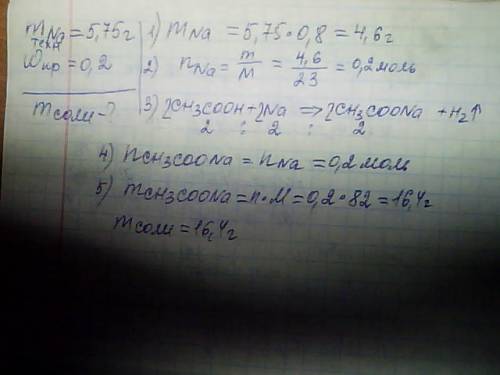 mNa = 5,75г
техн
ωпр = 0,2
mсоли - ?
1) mNa = 5,75 • 0,8 = 4,6г
2) nNa = m/M = 4,6/23 = 0,2 моль
3) 2CH3COOH + 2Na => 2CH3COONa + H2↑
2 : 2 : 2
4) nCH3COONa = nNa = 0,2 мол
5) mCH3COONa = n • M = 0,2 • 82 = 16,4г
mсоли = 16,4г